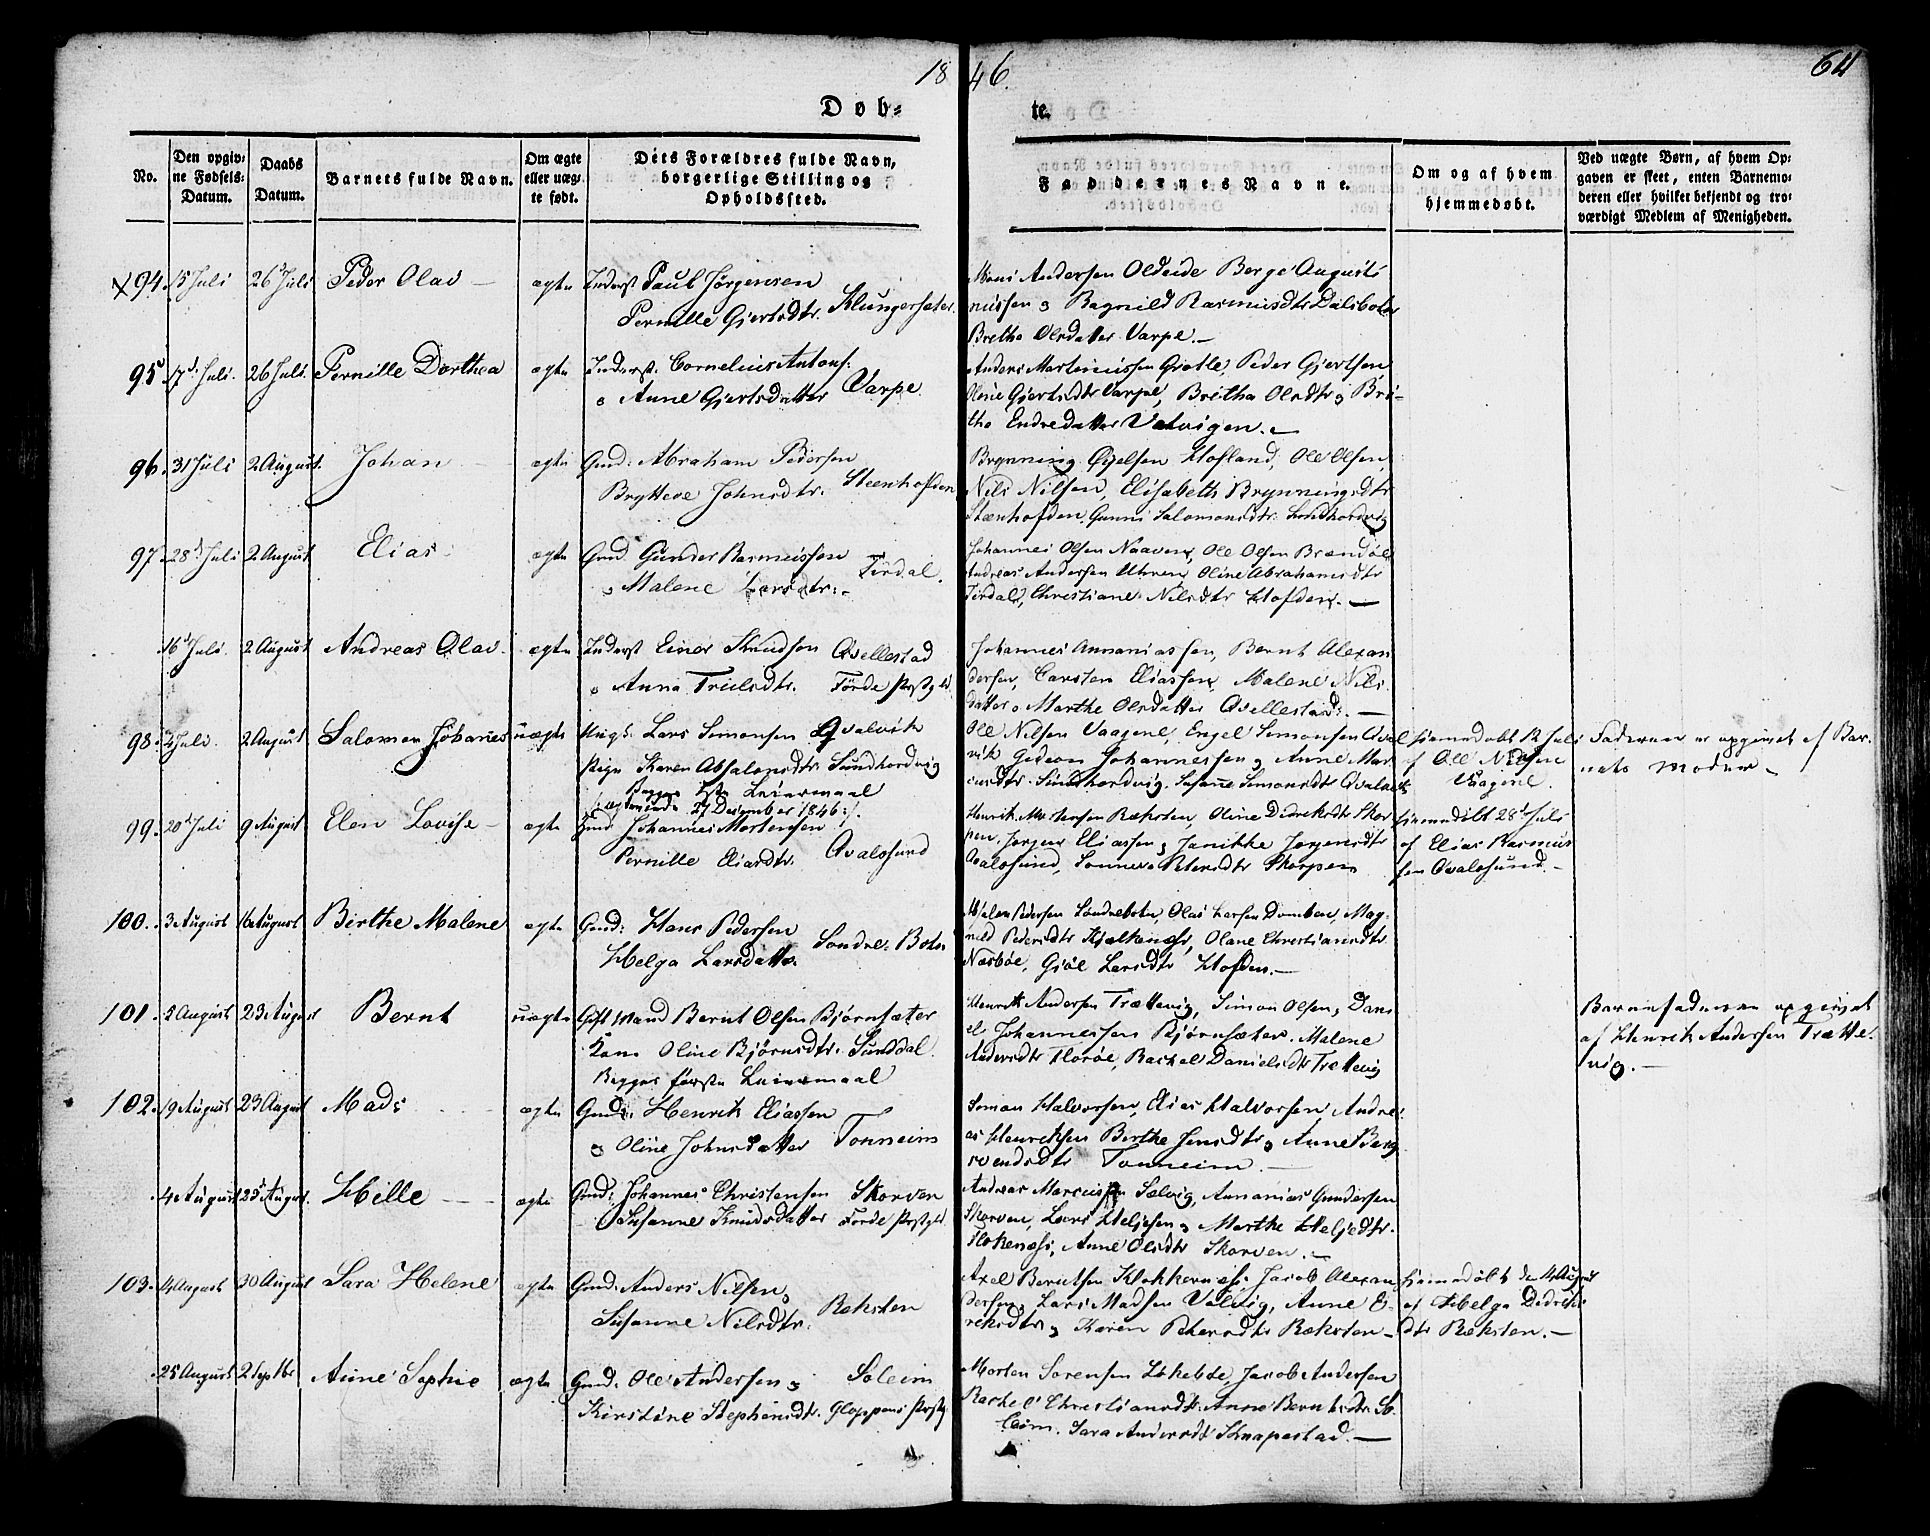 1846.
64
Døb-
te.
No.
Den opgiv-
ne Fødsels-
Datum.
Daabs
Datum.
Barnets fulde Navn.
Om ægte
eller uæg-
te født.
Dets Forældres fulde Navn,
borgerlige Stilling og
Opholdssted.
Faddernes Navne.
Om og af hvem
hjemmedøbt.
Ved uægte Børn, af hvem Op-
gaven er skeet, enten Barnemo-
deren eller hvilket bekjendt og tro-
værdigt Medlem af Menigheden.
94. 15 Juli 26 Juli Peder Olai ægte Inderst Paul Jørgensen
Pernille Gjertsdtr. Klungersæter.
Mons Andersen Oldeide Berge Augusti-
nussen og Ragnild Rasmusdtr Dalsbotn
Brethe Olsdatter Varpe.
95 17de Juli. 26 Juli. Pernille Dorthea ægte Inderst. Cornelius Antons:
o Anne Gjertsdatter Varpe
Anders Martinussen Grotle, Peder Gjertsen,
Oline Gjertsdtr Varpe, Bretha Olsdtr og Bri-
the Endredatter Vatvigen.
96. 31 Juli 2 August. Johan ægte Gmd: Abraham Pedersen
Brytteve Johnsdtr. Steenhofden
Brynning Hofland, Ole Olsen,
Nils Nilsen, Elisabeth Brynningsdtr
Steenhofden, Gunni Salomonsdtr.
97 28 Juli 2 August Elias ægte Gmd Gunder Rasmussen
o Malene Larsdtr. Tirdal.
Johannes Olsen Naaven, Ole Olsen Brandøe
Andreas Andersen Uhren, Oline Abrahamsdtr
Tirdal, Christiane Nilsdtr Hofden.
16 Juli. 2 August Andreas Olai ægte Inderst Einer Knudsen Qvellestad
o Anna Trulsdtr. Førde Prstgld
Johannes Annaniassen, Bernt Alexan
dersen, Carsten Eliassen, Malene Nils
datter o Marthe Olsdatter Qvellestad.
98. Juli. 2 August Salomon Johannes uægte Ungk. Lars Simonsen Qvalvik
Pige Karen Absalonsdtr Sundhordvig
Begges 1ste Leiermaal
27 December 1846:/.
Ole Nilsen Vaagene, Engel Simonsen Qval
vik Gideon Johannessen og Anne Mar
cusdtr. Sundhordvig. Susanne Simonsdtr Qvalvik
hiemmdøbt Juli
af Ole Nilsen
Vaagene.
Faderen er opgivet af Bar-
nets Moder
99. 20 Juli 9 August Elen Lovise ægte Gmd Johannes Mortensen
Pernille Eliasdtr. Qvalosund
Henrik Mortensen Reksten, Oline Didriksdtr Skor
pen. Jørgen Eliassen, Janikke Jørgensdtr
Qvalosund, Petersdtr Skorpen
hiemmdøbt 28de Juli
af Elias Rasmus
sen Qvalosund.
100. 3 August 16 August Birthe Malene ægte Gmd: Hans Pedersen
Helga Larsdatter. Sondre. Botn
Pedersen Sondrebotn, Olai Larsen Domben, Mag-
nild Pedersdtr Hjelkenes, Olane Christiansdtr
Næsbøe, Gjøl Larsdtr Hofden.
101. 2 August 23 August Bernt uægte Gift Mand Bernt Olsen Bjørnsæter
Kone Oline Bjørnsdtr. Sunddal.
Begges første Leiermaal
Henrik Andersen Trættevig, Simon Olsen, Dani
el Johannessen Bjørnsæter. Malene
Andersdtr Florøe, Rachel Danielsdtr Trettevig
Barnefaderen opgivet
af Henrik Andersen Trætte-
vig.
102. 19 August 23 August Mads ægte Gmd: Henrik Eliassen
o Oline Johnsdatter Tonneim
Simon Halvorsen, Elias Halvorsen Andre-
as Henriksen Berthe Jensdtr, Anne Berg
svendsdtr Tonneim.
4 August 23 August. Hille ægte Gmd: Johannes Christensen Skorven
Susanne Knudsdatter Førde Prstgld
Andreas Marcussen Solvig, Annanias Gundersen
Skorven, Lars Heljesen og Marthe Heljedtr.
Flokenæs, Anne Olsdtr Skorven.
103. 4 August 30 August Sara Helene ægte Gmd: Anders Nilsen,
Susanne Nilsdtr. Reksten
Axel Berntsen Klokkernæs. Jacob Alexan
dersen, Lars Madsen Valvig, Anne E-
reksdtr, Karen Petersdtr Reksten
hiemmdøbt de 4 August
af Helga Dedriks
dtr Reksten.
25 August 2 Septbr Anne Sophie ægte Gmd: Ole Andersen, Soleim
Kirstine Stephensdtr. Gloppens Prstg
Morten Sørensen Hokebøe, Jacob Andersen
Rachel Christiansdtr. Anne Berntsdtr So-
leim. Sara Andersdt Knapestad.